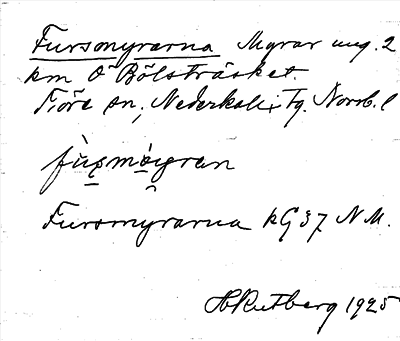 Fursomyrarna Myrar ung. 2
km Ö Bölsträsket.
Töre sn, Nederkalix tg. Norrb. l
Fursmyrarna kG 37 NM.
H Rutberg 1925